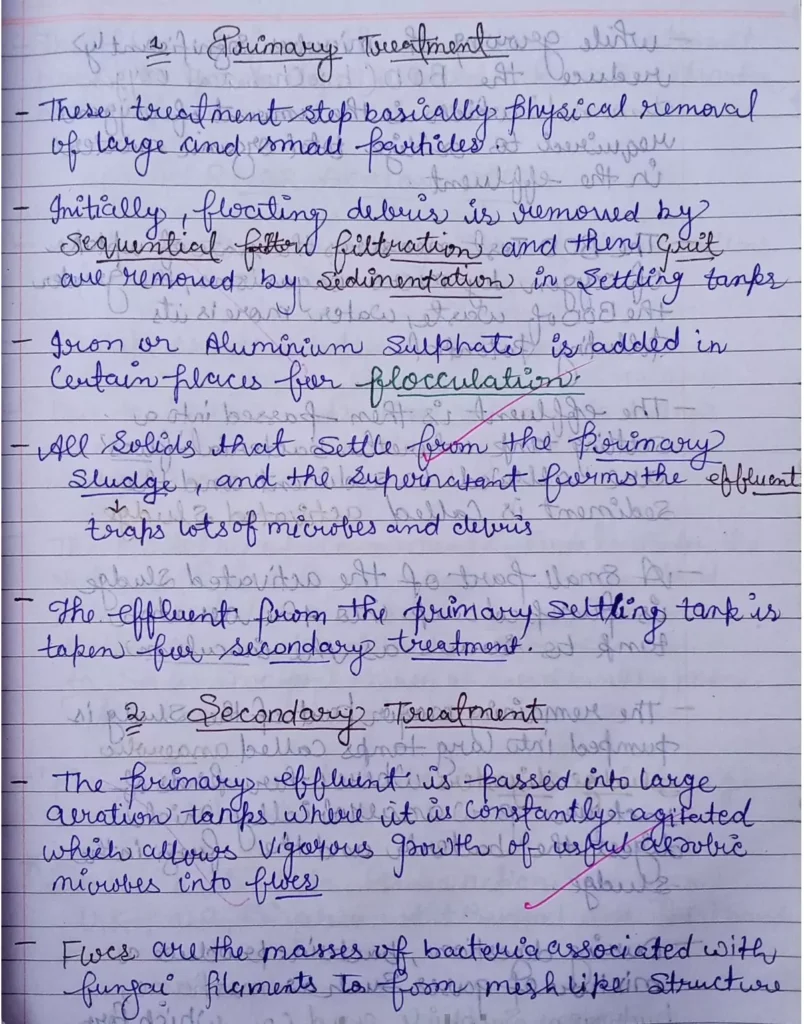 1 Primary Treatment
- These treatment step basically physical removal
of large and small particles.
- Initially, floating debris is removed by
Sequential filtration and then Grit
are removed by Sedimentation in Settling tanks
- Iron or Aluminium Sulphate is added in
Certain places for flocculation.
- All Solids that Settle from the primary
Sludge, and the Supernatant forms the effluent
↓ traps lots of microbes and debris
- The effluent from the primary settling tank is
taken for secondary treatment.
2 Secondary Treatment
- The primary effluent is passed into large
aeration tanks where it is Constantly agitated
which allows vigorous growth of useful aerobic
microbes into flocs
- Flocs are the masses of bacteria associated with
fungal filaments to form mesh like Structure